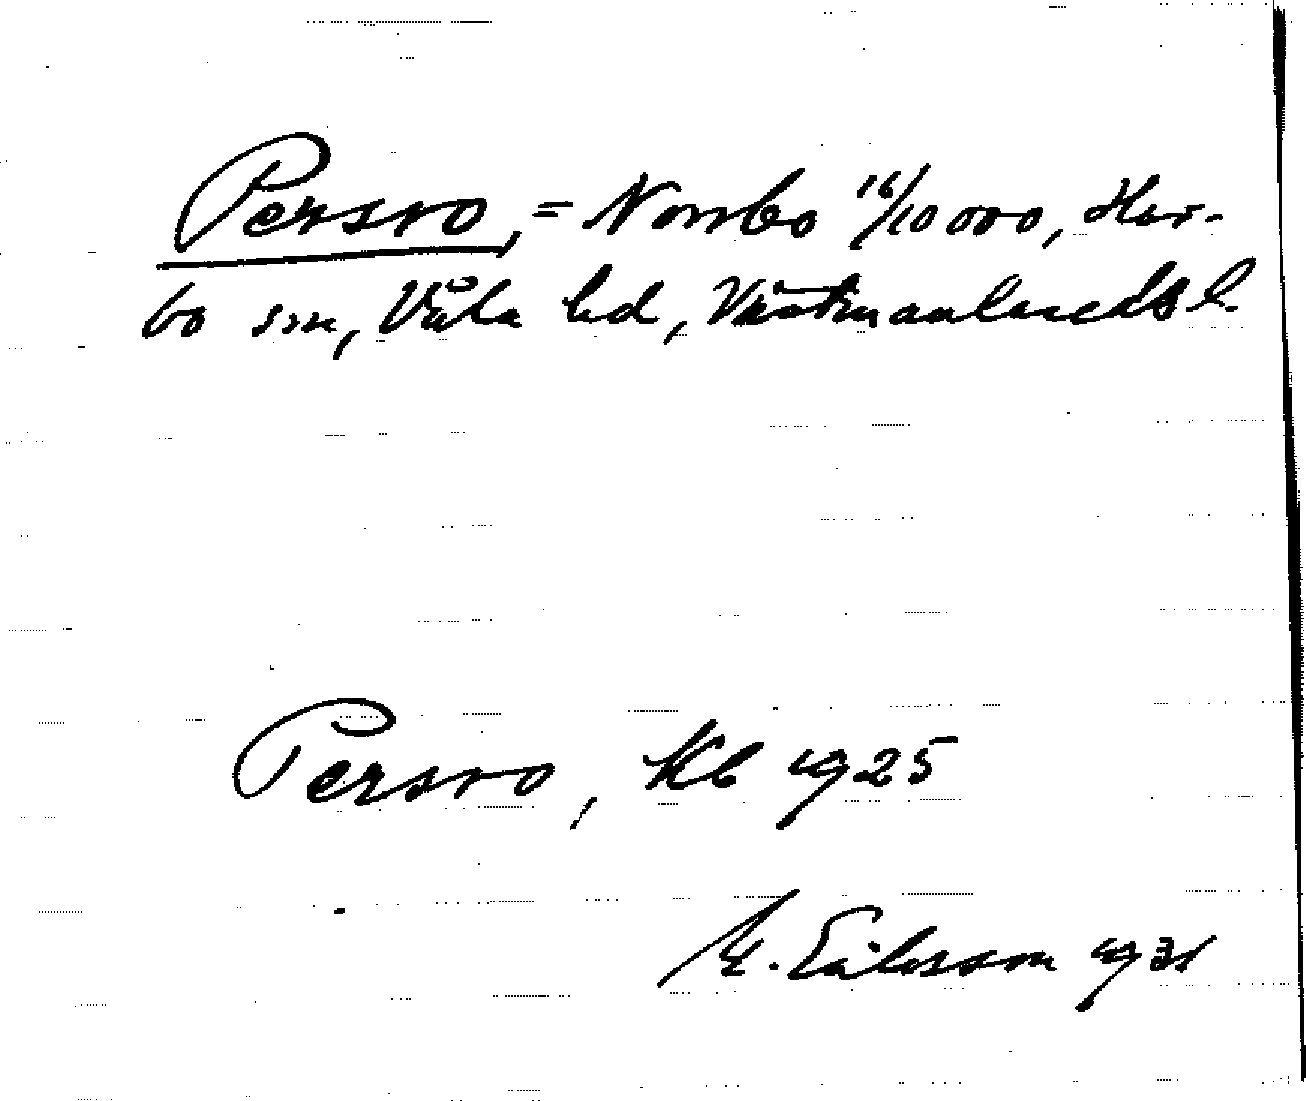 Persro, = Norrbo 16/10000, Har-
bo sn, Våla hd, Västmanlands l.
Persro, Kb 1925
M. Eriksson 1931